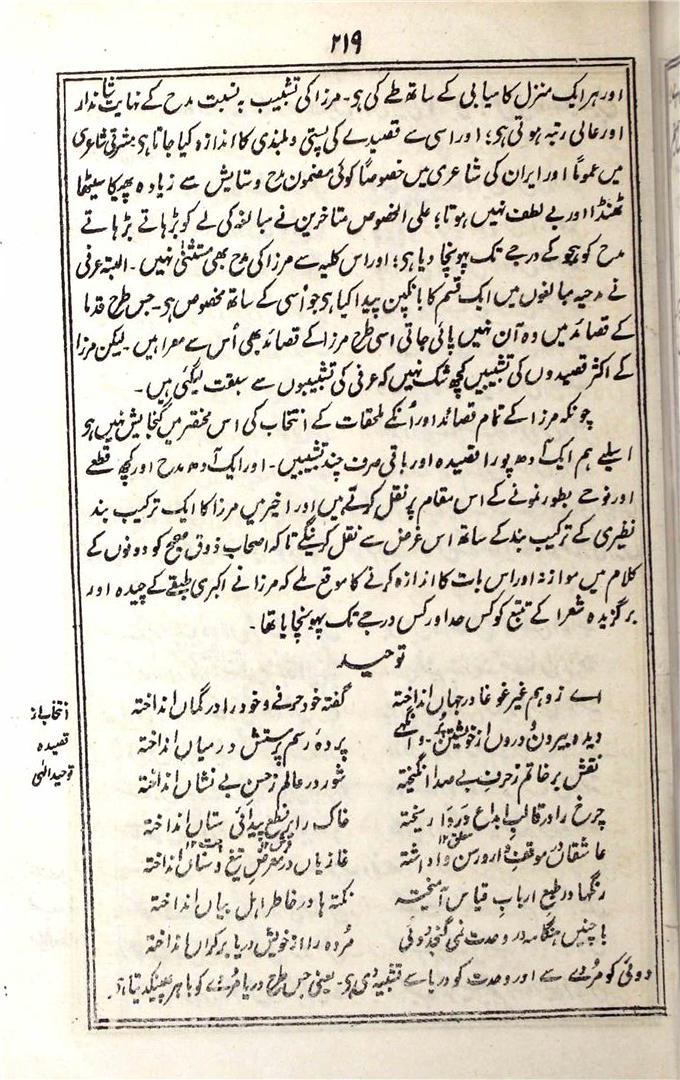 ۲۱۹
اور ہر ایک منزل کامیابی کے ساتھ طے کی ہی۔ مرزا کی تشبیب بہ نسبت مدح کے نہایت شاندار
اور عالی رتبہ ہوتی ہی؛ اور اسی سے قصیدے کی پستی و بلندی کا اندازہ کیا جاتا ہی۔ مشرقی شاعری
میں عموماً اور ایران کی شاعری میں خصوصاً کوئی مضمون مدح و ستایش سے زیادہ پھیکا سیٹھا
ٹھنڈا اور بے لطف نہیں ہوتا؛ علی الخصوص متاخرین نے مبالغہ کی لے کو بڑہاتے بڑہاتے
مدح کو ہجو کے درجے تک پہونچا دیا ہی؛ اور اس کلیہ سے مرزا کی مدح بھی مستثنیٰ نہیں۔ البتہ عرفی
نے مدحیہ مبالغوں میں ایک قسم کا بانکپن پیدا کیا ہی جو اُسی کے ساتھ مخصوص ہی۔ جس طرح قدما
کے قصائد میں وہ آن نہیں پائی جاتی اسی طرح مرزا کے قصائد بھی اُس سے معرا ہیں۔ لیکن مرزا
کے اکثر قصیدوں کی تشبیبیں کچھ شک نہیں کہ عرفی کی تشبیبوں سے سبقت لیگئی ہیں۔
چونکہ مرزا کے تمام قصائد اور اُنکے ملحقات کے انتخاب کی اس مختصر میں گنجایش نہیں ہی
اسلیے ہم ایک آدھ پورا قصیدہ اور باقی صرف چند تشبیبیں۔ اور ایک آدھ مدح اور کچھ قطعے
اور نوحے بطور نمونے کے اس مقام پر نقل کرتے ہیں اور اخیر میں مرزا کا ایک ترکیب بند
نظیری کے ترکیب بند کے ساتھ اس غرض سے نقل کرینگے تاکہ اصحاب ذوق صحیح کو دونوں کے
کلام میں موازنہ اور اس بات کا اندازہ کرنے کا موقع ملے کہ مرزا نے اکبری طبقے کے چیدہ اور
برگزیدہ شعرا کے تتبع کو کس حد اور کس درجے تک پہونچایا تھا۔
توحید
انتخاب از
قصیدہ
توحید الٰہی
اے ز وہم غیر غوغا در جہاں انداختہ گفتہ خود حرفے و خود را در گماں انداختہ
دیدہ بیرون و دروں از خویشتن پُر وانگہے پردۂ رسم پرستش درمیاں انداختہ
نقش بر خاتم ز حرف بے صدا انگیختہ شور در عالم ز حسن بے نشاں انداختہ
چرخ را در قالب ابداع دروا ریختہ خاک را بر نطع پیدائی ستاں انداختہ
عاشقاں در موقف دار و رسن واداشتہ غازیاں در معرض تیغ و سناں انداختہ
رنگہا در طبع ارباب قیاس آمیختہ نکتہ ہا در خاطر اہل بیاں انداختہ
با چنیں ہنگامہ در وحدت نمی گنجد دوئی مُردہ را از خویش دریا بر کراں انداختہ
دوئی کو مُردے سے اور وحدت کو دریا سے تشبیہ دی ہی۔ یعنی جس طرح دریا مُردے کو باہر پھینکدیتا ہی۔